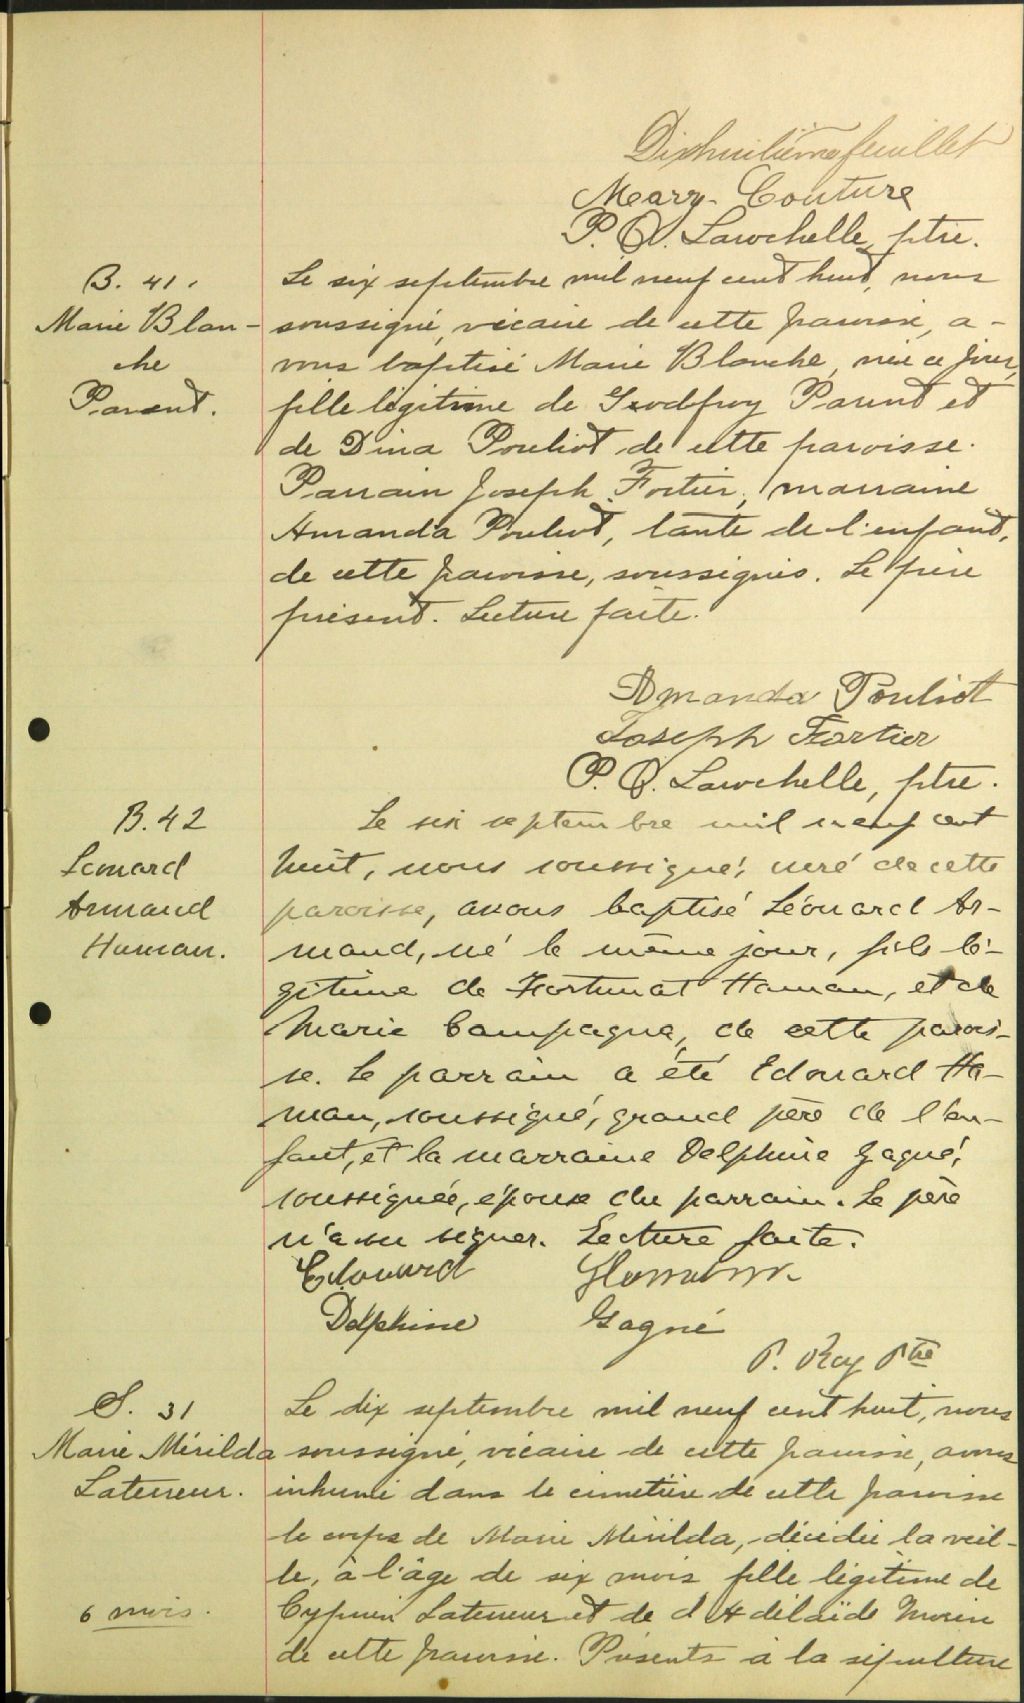 Dixhuitième feuillet
Mary Couture
P. O. Larochelle, ptre.
B. 41.
Marie Blan-
che
Parent.
Le six septembre mil neuf cent huit, nous
soussigné, vicaire de cette paroisse, a-
vons baptisé Marie Blanche, née ce jour,
fille légitime de Godfroy Parent et
de Dina Pouliot de cette paroisse.
Parrain Joseph Fortier, marraine
Amanda Pouliot, tante de l'enfant,
de cette paroisse, soussignés. Le père
présent. Lecture faite.
Amanda Pouliot
Joseph Fortier
P. O. Larochelle, ptre.
B. 42
Léonard
Armand
Haman.
Le six septembre mil neuf cent
huit, nous soussigné, curé de cette
paroisse, avons baptisé Léonard Ar-
mand, né le même jour, fils lé-
gitime de Fortunat Haman, et de
Marie Campagna, de cette parois-
se. Le parrain a été Edouard Ha-
man, soussigné, grand père de l'en-
fant, et la marraine Delphine Gagné,
soussignée, épouse du parrain. Le père
n'a su signer. Lecture faite.
Edouard Hamann
Delphine Gagné
P. Roy Ptre
S. 31
Marie Mérilda
Laterreur.
6 mois.
Le dix septembre mil neuf cent huit, nous
soussigné, vicaire de cette paroisse, avons
inhumé dans le cimetière de cette paroisse
le corps de Marie Mérilda, décédée la veil-
le, à l'âge de six mois fille légitime de
Cyprien Laterreur et de d'Adélaïde Morin
de cette paroisse. Présents à la sépulture